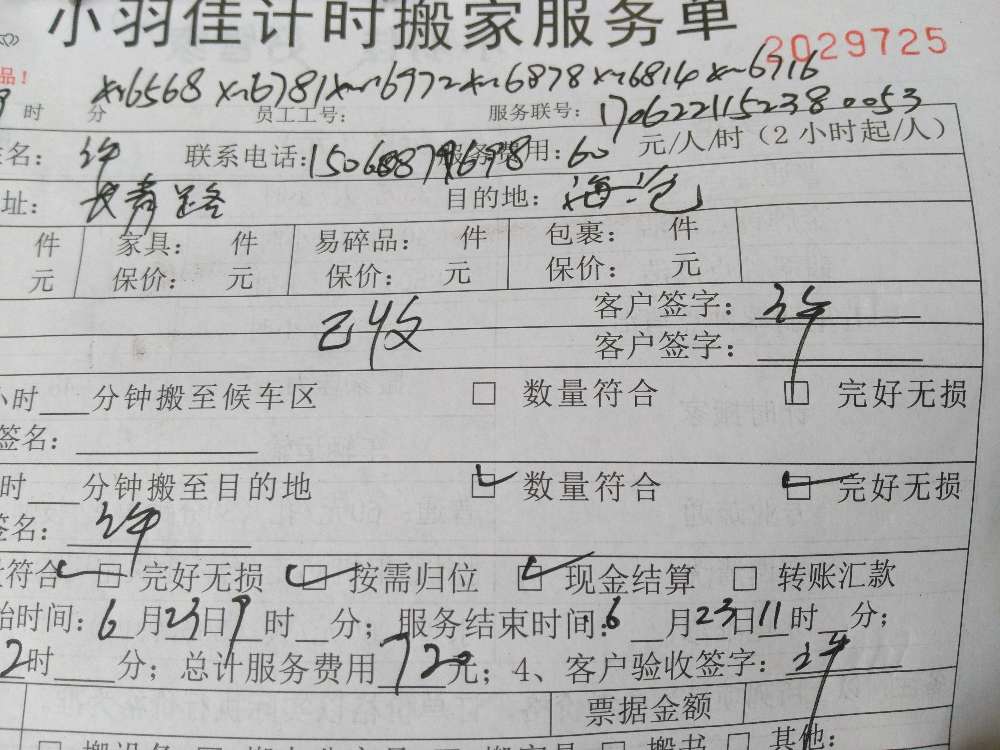 小羽佳计时搬家服务单
2029725
品!
6568 6781 6972 6878 6814 6716
时 分 员工工号: 服务联号: 170622115238 0053
姓名: 许 联系电话: 服务费用: 60 元/人/时(2小时起/人)
址: 长寿路 目的地:
件 家具: 件 易碎品: 件 包裹: 件
元 保价: 元 保价: 元 保价: 元
客户签字: 许
已收
客户签字:
小时 分钟搬至候车区 □ 数量符合 □ 完好无损
签名:
时 分钟搬至目的地 ☑ 数量符合 ☑ 完好无损
签名: 许
符合 ☑ 完好无损 ☑ 按需归位 ☑ 现金结算 □ 转账汇款
始时间: 6月23日9时 分; 服务结束时间: 6月23日11时 分;
2时 分; 总计服务费用 720元; 4、客户验收签字: 许
票据金额
□ 搬书 □ 其他: